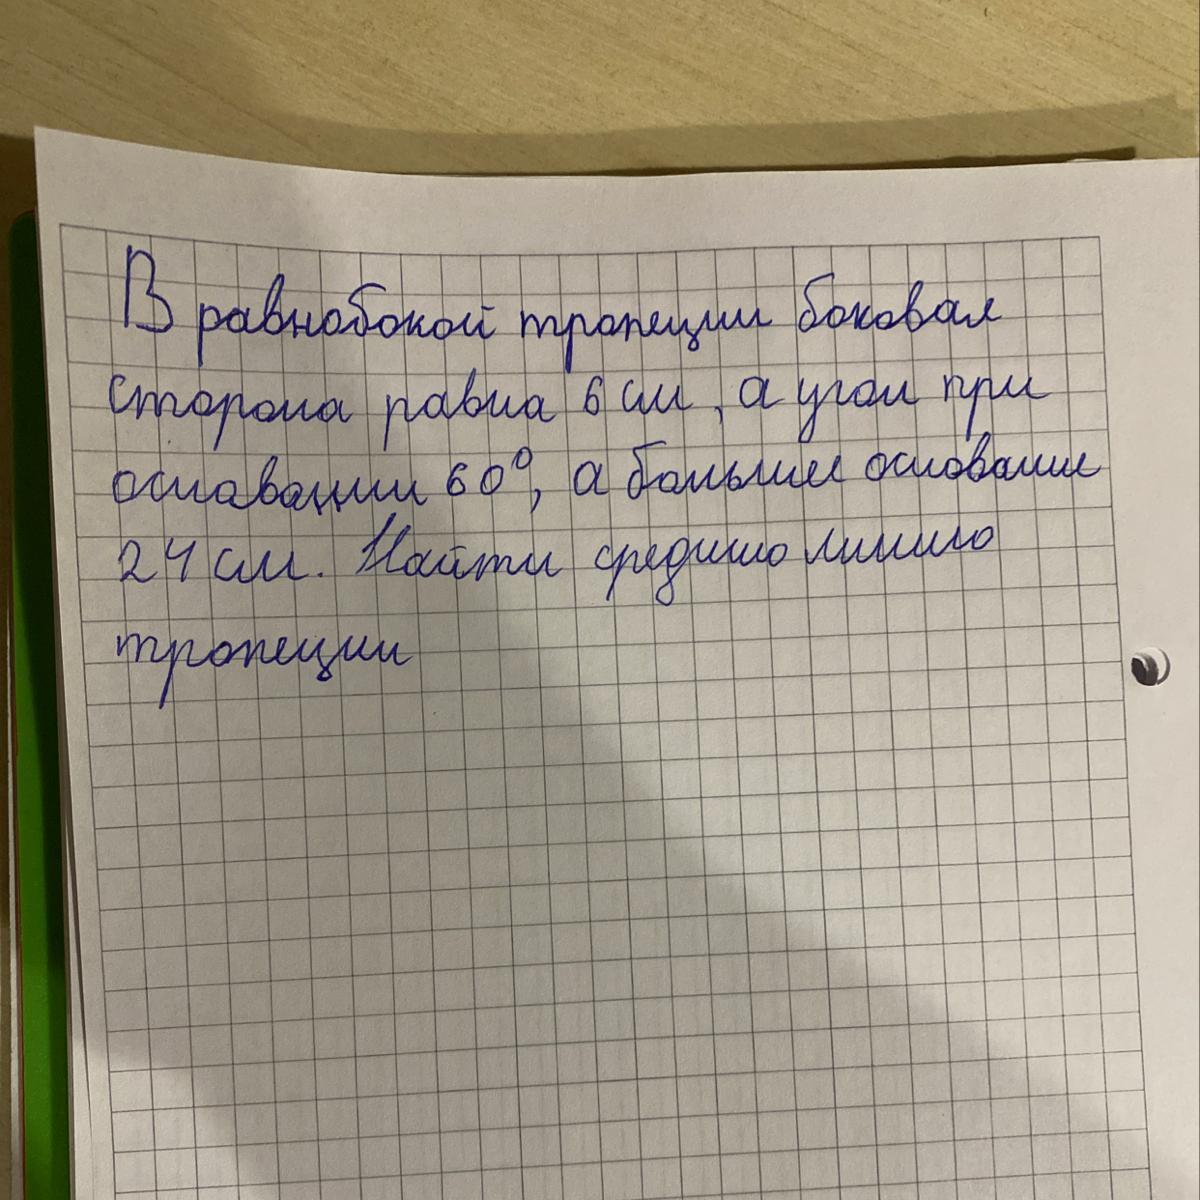 В равнобокой трапеции боковая
сторона равна 6 см, а угол при
основании 60°, а большее основание
24 см. Найти среднюю линию
трапеции